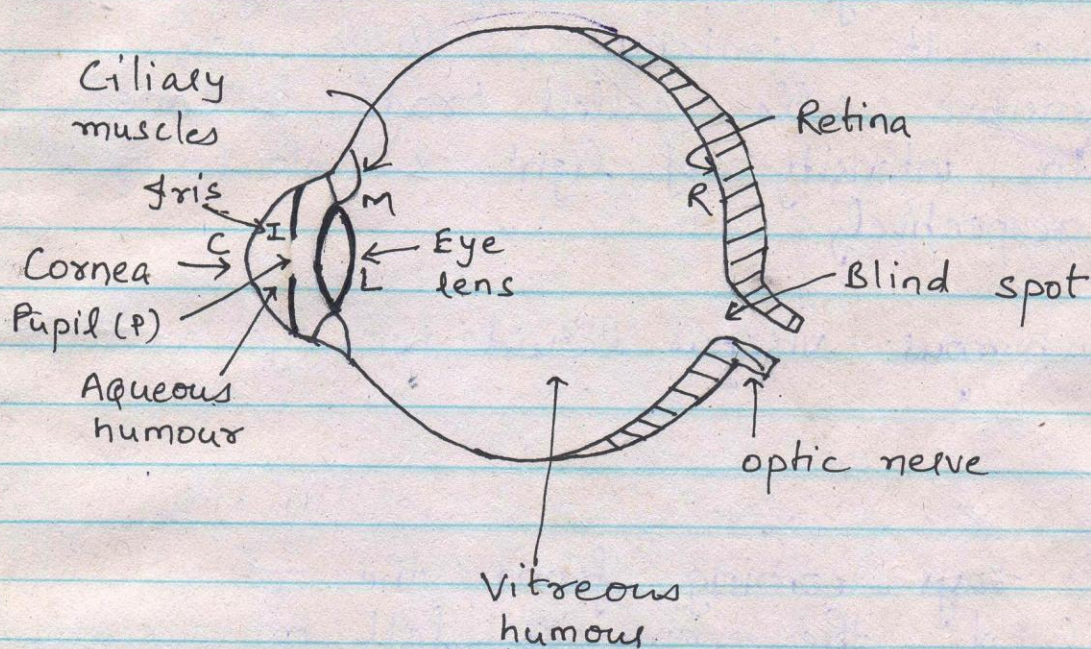 Ciliary
muscles
Iris
C
I
M
Cornea
Pupil (P)
L
Eye
lens
Aqueous
humour
Retina
R
Blind spot
optic nerve
Vitreous
humour